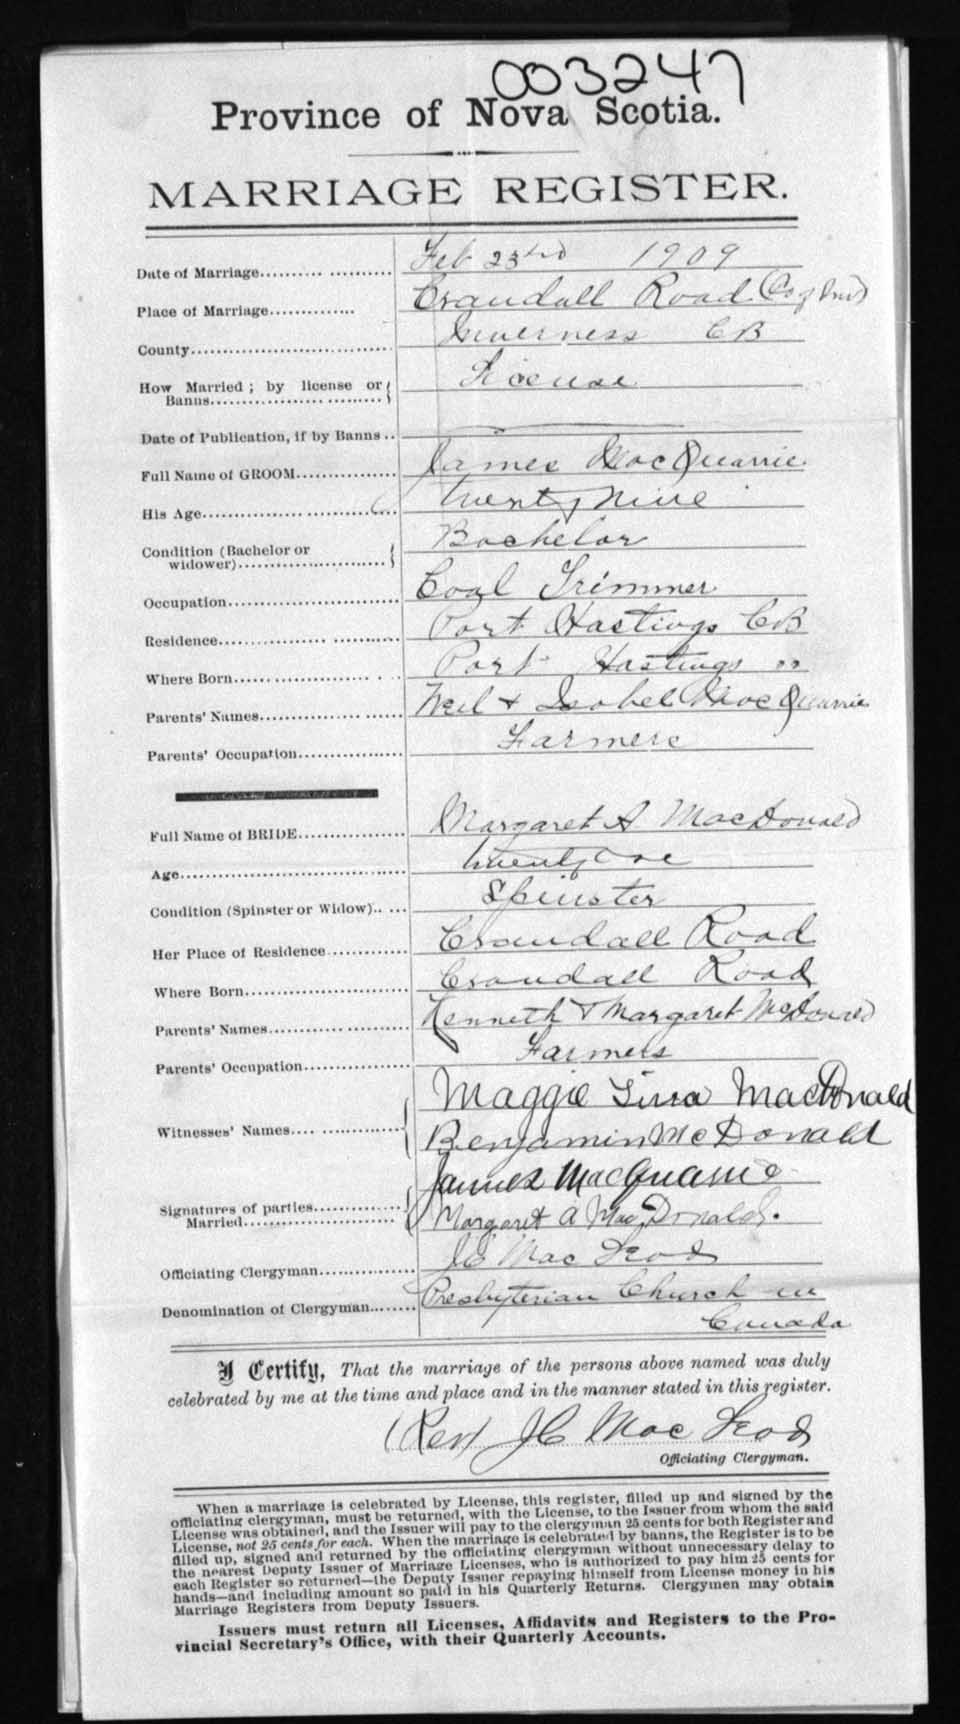 003247
Province of Nova Scotia.
MARRIAGE REGISTER.
Date of Marriage.................. Feb 23rd 1909
Place of Marriage.............. Crandall Road
County............................... Inverness CB
How Married ; by license or License
Banns..............................
Date of Publication, if by Banns ..
Full Name of GROOM............... James MacQuarrie
His Age............................. twenty nine
Condition (Bachelor or Bachelor
widower)..........................
Occupation........................... Coal Trimmer
Residence........................... Port Hastings CB
Where Born.......................... Port Hastings "
Parents' Names..................... Neil & Isobel MacQuarrie
Parents' Occupation................ Farmers
Full Name of BRIDE................ Margaret A MacDonald
Age..................................
Condition (Spinster or Widow)..... Spinster
Her Place of Residence............ Crandall Road
Where Born.......................... Crandall Road
Parents' Names..................... Kenneth & Margaret McDonald
Parents' Occupation................ Farmers
Maggie MacDonald
Witnesses' Names................... Benjamin McDonald
James MacQuarrie
Signatures of parties..............
Married............................ Margaret A MacDonald.
Officiating Clergyman.............. JC MacLeod
Denomination of Clergyman....... Presbyterian Church in
Canada
I Certify, That the marriage of the persons above named was duly
celebrated by me at the time and place and in the manner stated in this register.
(Rev) JC MacLeod
Officiating Clergyman.
When a marriage is celebrated by License, this register, filled up and signed by the
officiating clergyman, must be returned, with the License, to the Issuer from whom the said
License was obtained, and the Issuer will pay to the clergyman 25 cents for both Register and
License, not 25 cents for each. When the marriage is celebrated by banns, the Register is to be
filled up, signed and returned by the officiating clergyman without unnecessary delay to
the nearest Deputy Issuer of Marriage Licenses, who is authorized to pay him 25 cents for
each Register so returned—the Deputy Issuer repaying himself from License money in his
hands—and including amount so paid in his Quarterly Returns. Clergymen may obtain
Marriage Registers from Deputy Issuers.
Issuers must return all Licenses, Affidavits and Registers to the Pro-
vincial Secretary's Office, with their Quarterly Accounts.